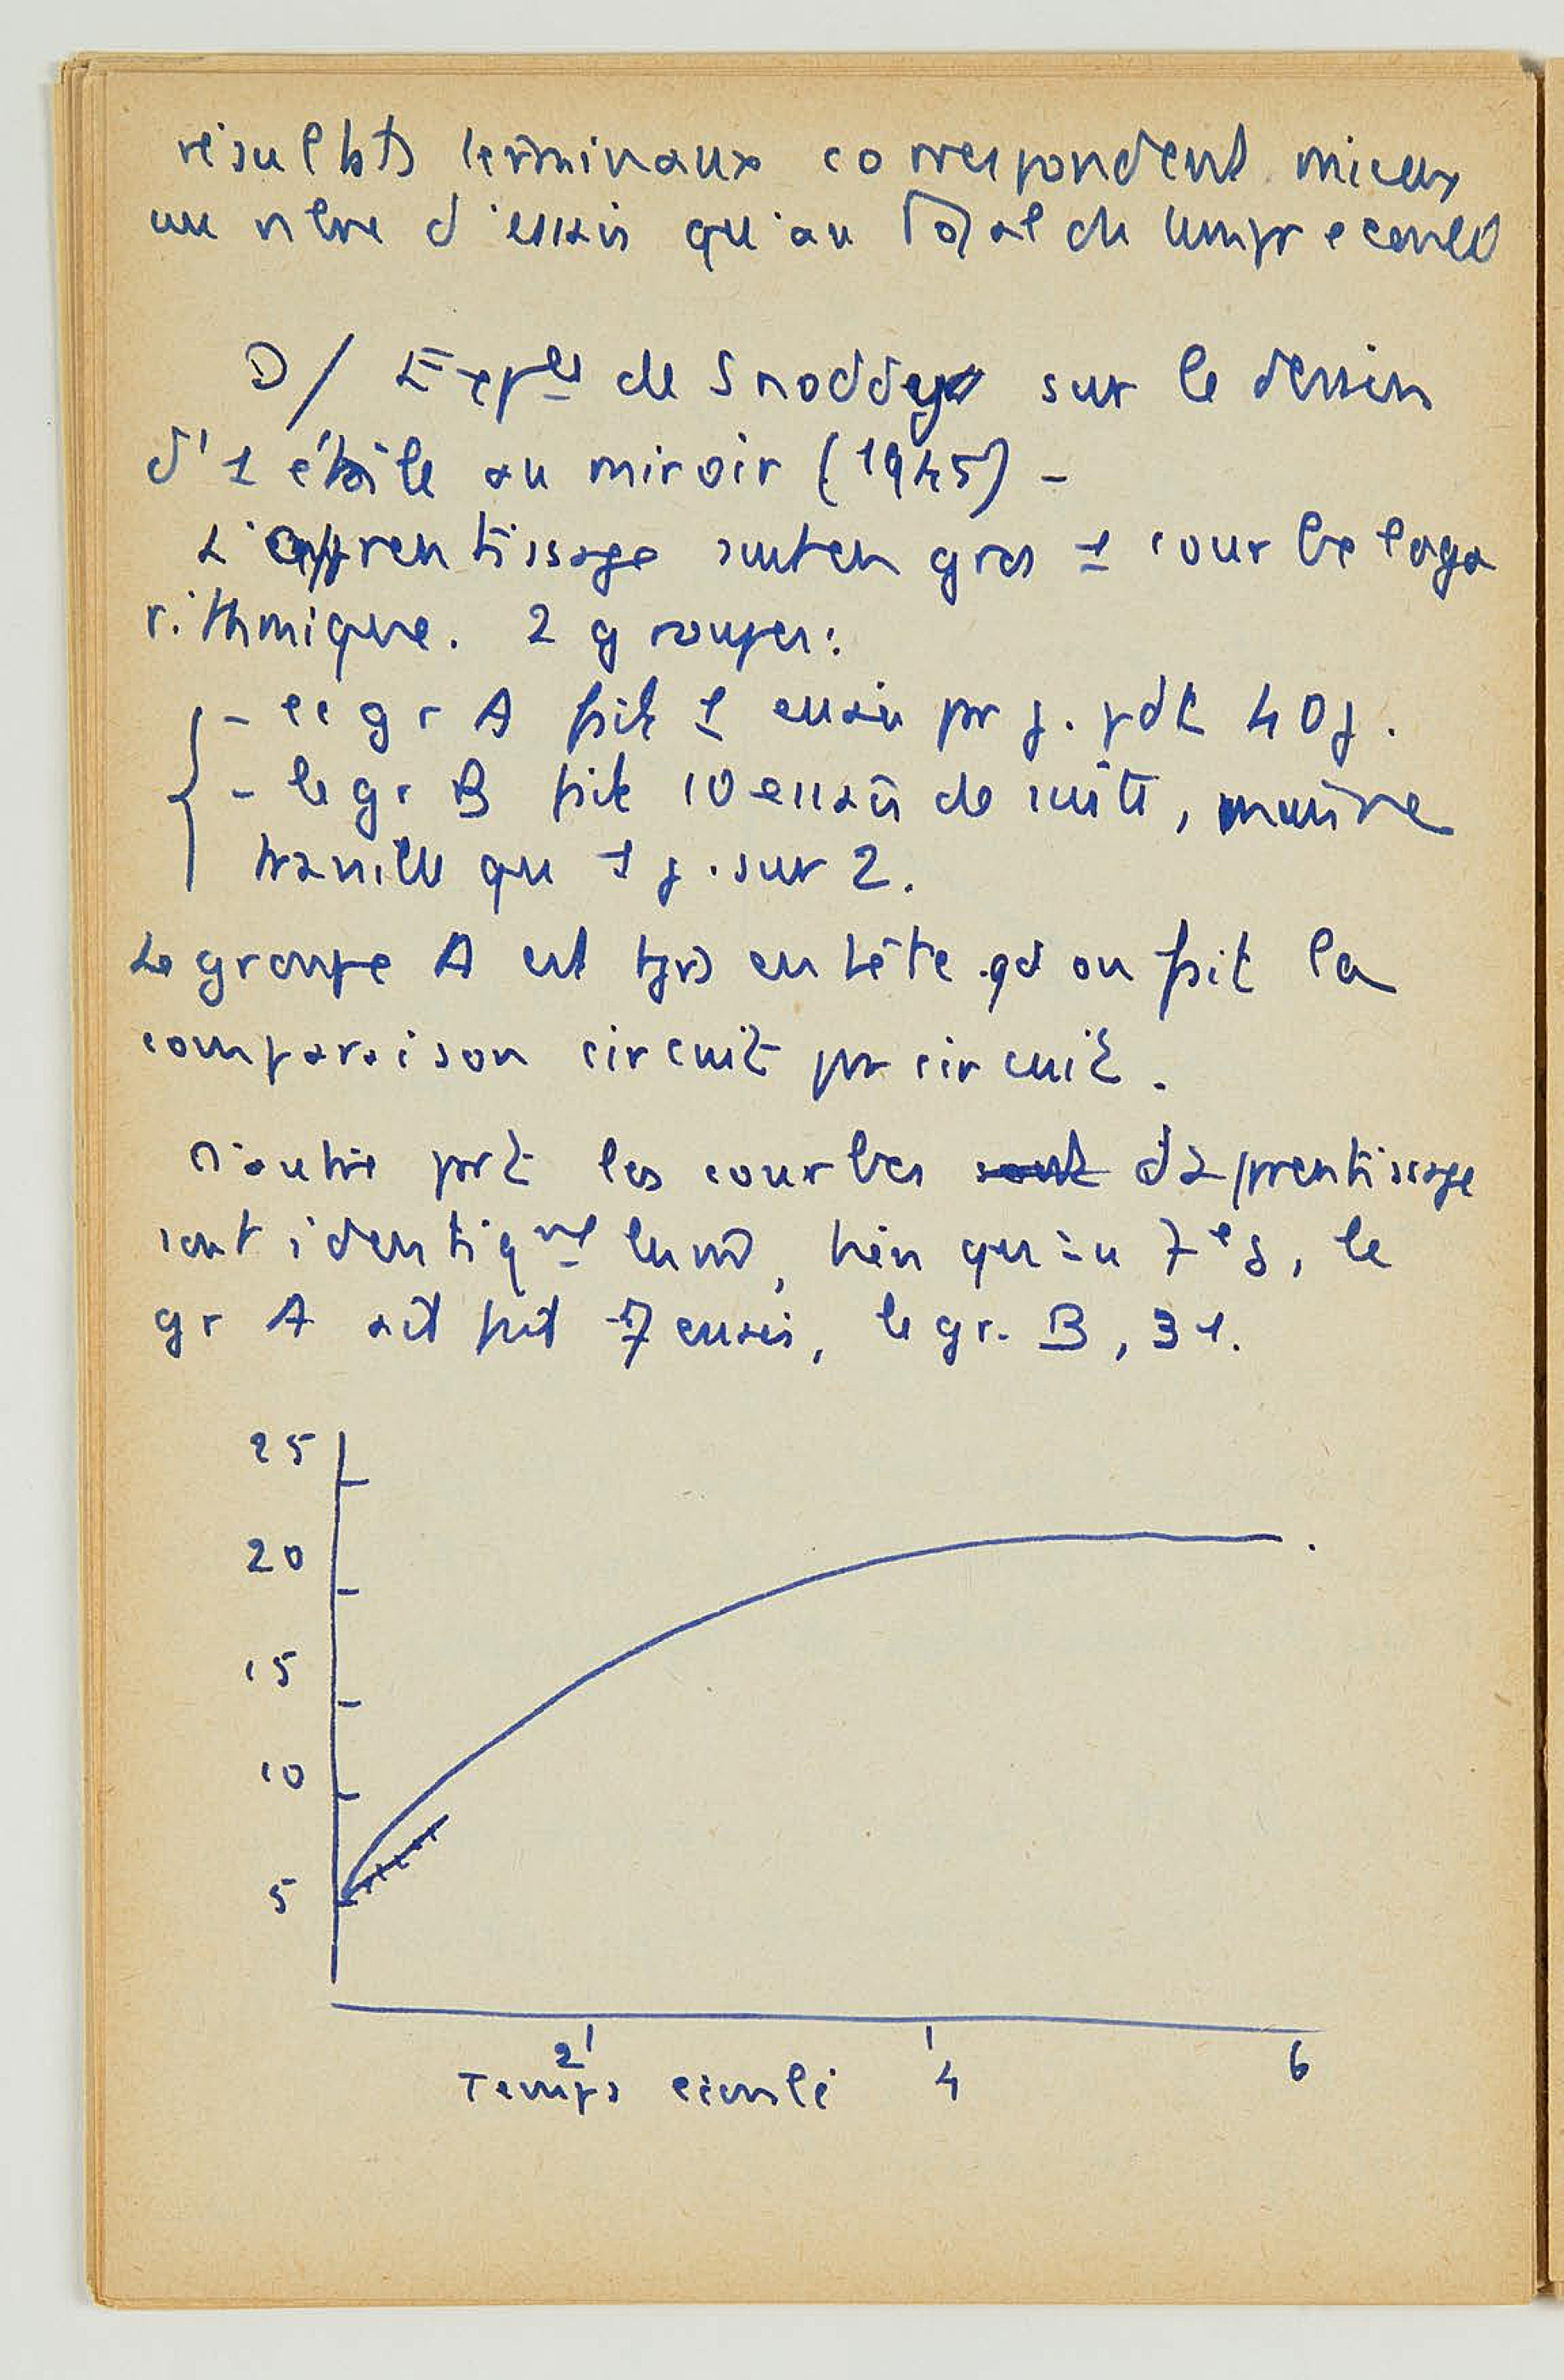 résultats terminaux correspondent mieux
au nbre d'essais qu'au total du temps écoulé
D/ Exp^ces de Snoddy sur le dessin
d'1 étoile au miroir (1945) -
L'apprentissage suit en gros 1 courbe loga
rithmique. 2 groupes:
- le gr A fait 1 essai par j. pdt 40 j.
- le gr B fait 10 essais de suite, mais ne
travaille que 1 j. sur 2.
Le groupe A est tjrs en tête qd on fait la
comparaison circuit par circuit.
D'autre part les courbes sont d'apprentissage
sont identiq^nt, bien qu'au 7^e j, le
gr A ait fait 7 essais, le gr. B, 31.
25
20
15
10
5
2 4 6
Temps écoulé